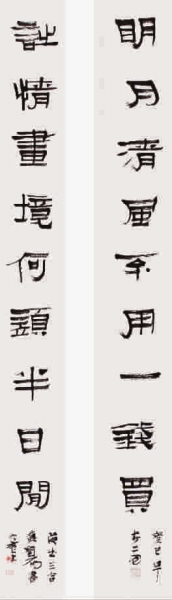 明月清風不用一錢買
癸巳早
詩情畫境何須半日閒